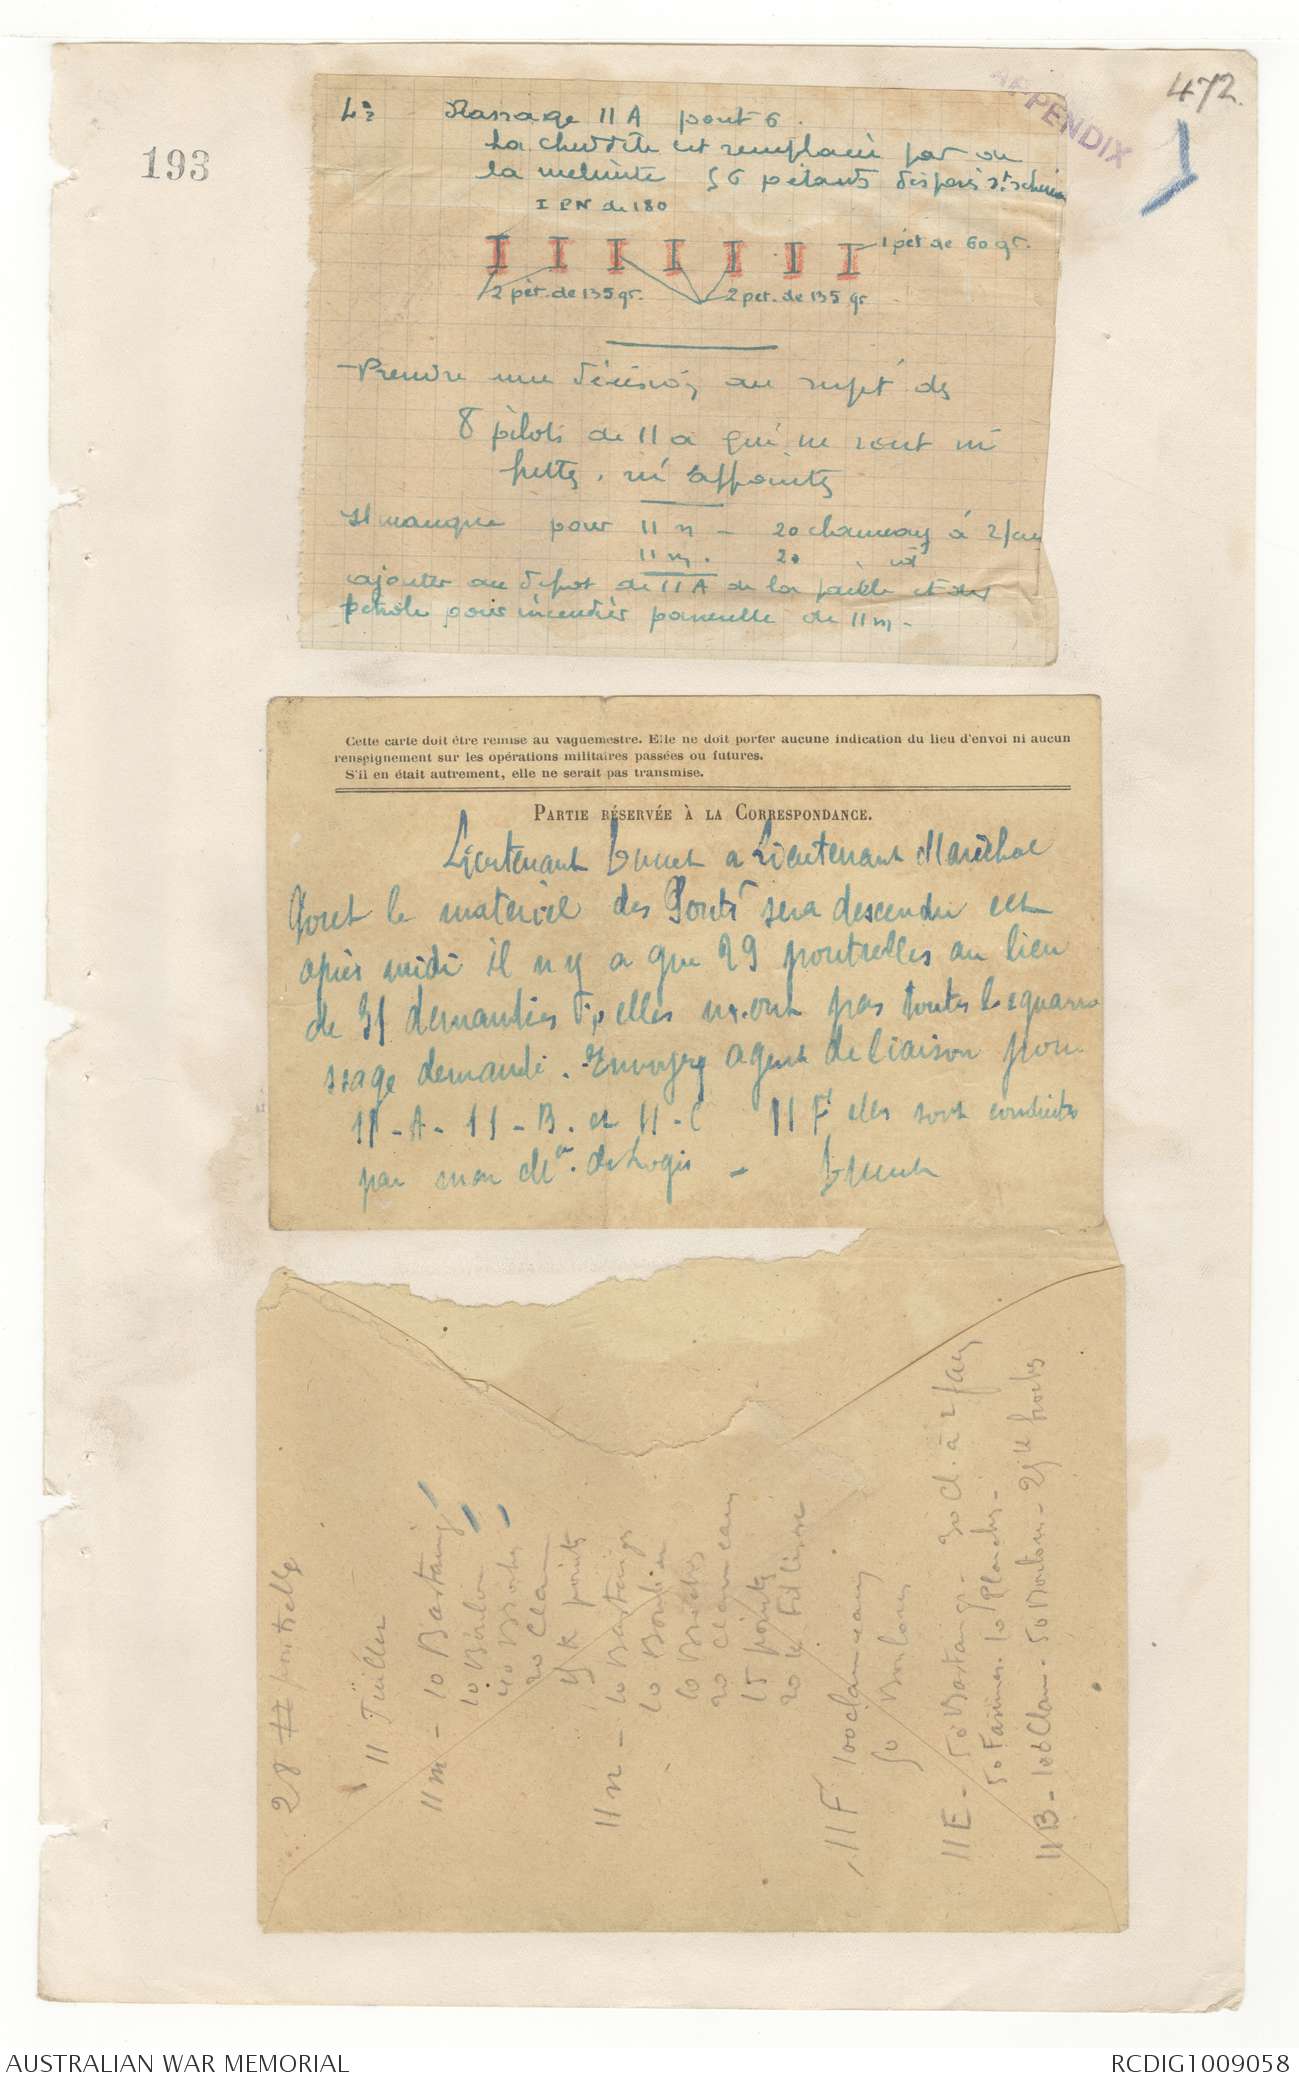 472.
APPENDIX
193
11 A pont 6.
La cheddite est remplacée par
la melinite 56 petards
I PN de 180
1 pet de 60 gr.
2 pet. de 135 gr.
2 pet. de 135 gr
- Prendre une décision au sujet des
8 pilots de 11 a qui ne sont ni
, ni appointés
Il manque pour 11 n - 20 chameaux à 2
11 m. 20
ajouter au depot de 11 A de la paille et du
petrole pour incendier passerelle de 11 m -
Cette carte doit être remise au vaguemestre. Elle ne doit porter aucune indication du lieu d'envoi ni aucun
renseignement sur les opérations militaires passées ou futures.
S'il en était autrement, elle ne serait pas transmise.
PARTIE RÉSERVÉE À LA CORRESPONDANCE.
Lieutenant a Lieutenant Maréchal
le materiel des Ponts sera descendu cet
après midi il n y a que 29 poutrelles au lieu
de 31 demandées elles n'ont pas toutes l'equarri
ssage demandé. Envoyez agent de liaison pour
11 - A - 11 - B. et 11 - C 11 F elles sont conduites
par mon de Logis -
28 poutrelles
11 Tuiller
11 m - 10 Bastaings
10 Boulon
40 Broches
20 Clam
points
11 n - 10 Bastaings
10 Boulon
10 Broches
20 clameaux
15 points
20 k Fil lisse
11 F 100 clameaux
50 Boulons
11 E - 50 Bastaings - 30 Cl. à 2 faces
50 Fascines. 10 Planches -
11 B - 100 Clam - 50 Boulons - 25 k
AUSTRALIAN WAR MEMORIAL
RCDIG1009058